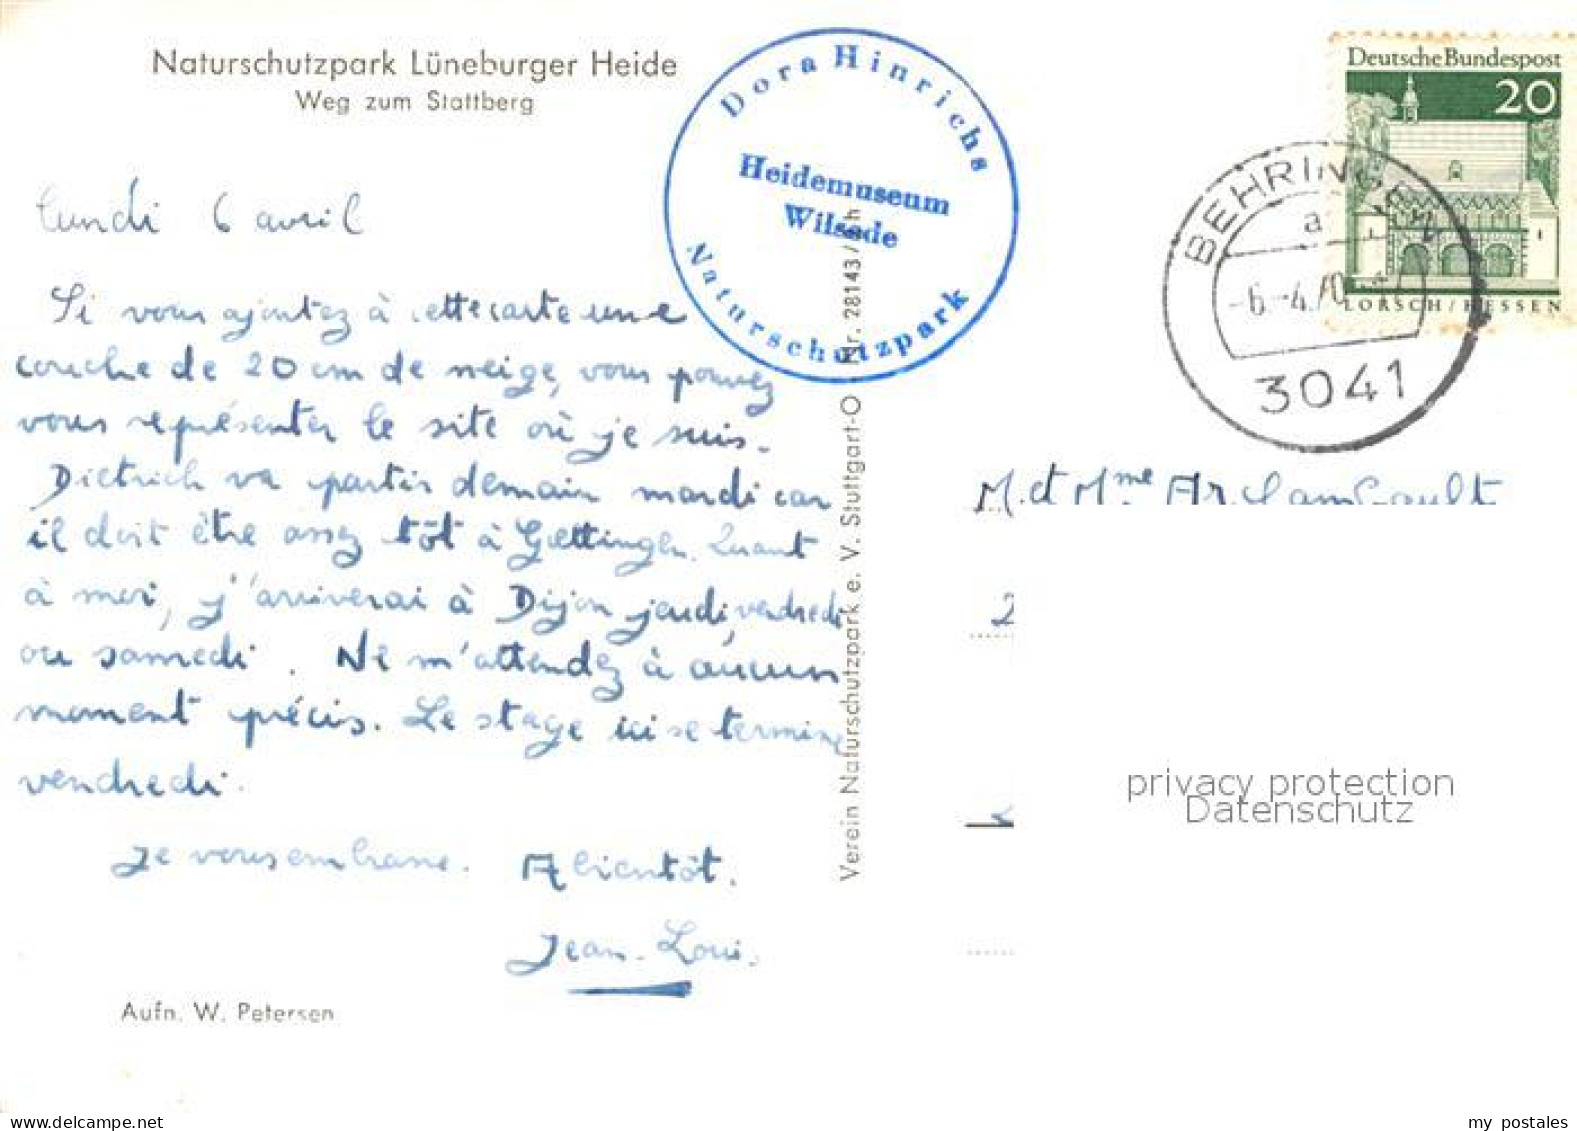 Naturschutzpark Lüneburger Heide
Weg zum Stattberg
Dora Hinrichs
Heidemuseum
Wilsede
Naturschutzpark
Deutsche Bundespost
20
LORSCH/HESSEN
BEHRINGEN
a
-6.-4.70
3041
lundi 6 avril
Si vous ajoutez à cette carte une
couche de 20 cm de neige, vous pouvez
vous représenter le site où je suis.
Dietrich va partir demain mardi car
il doit être assez tôt à Goettingen. Quant
à moi, j'arriverai à Dijon jeudi, vendredi
ou samedi. Ne m'attendez à aucun
moment précis. Le stage ici se termine
vendredi.
Je vous embrasse. A bientôt.
Jean-Louis
Aufn. W. Petersen
Verein Naturschutzpark e. V. Stuttgart-O Nr. 28143/
M. et Mme Archambault
2
privacy protection
Datenschutz
my postales
www.delcampe.net